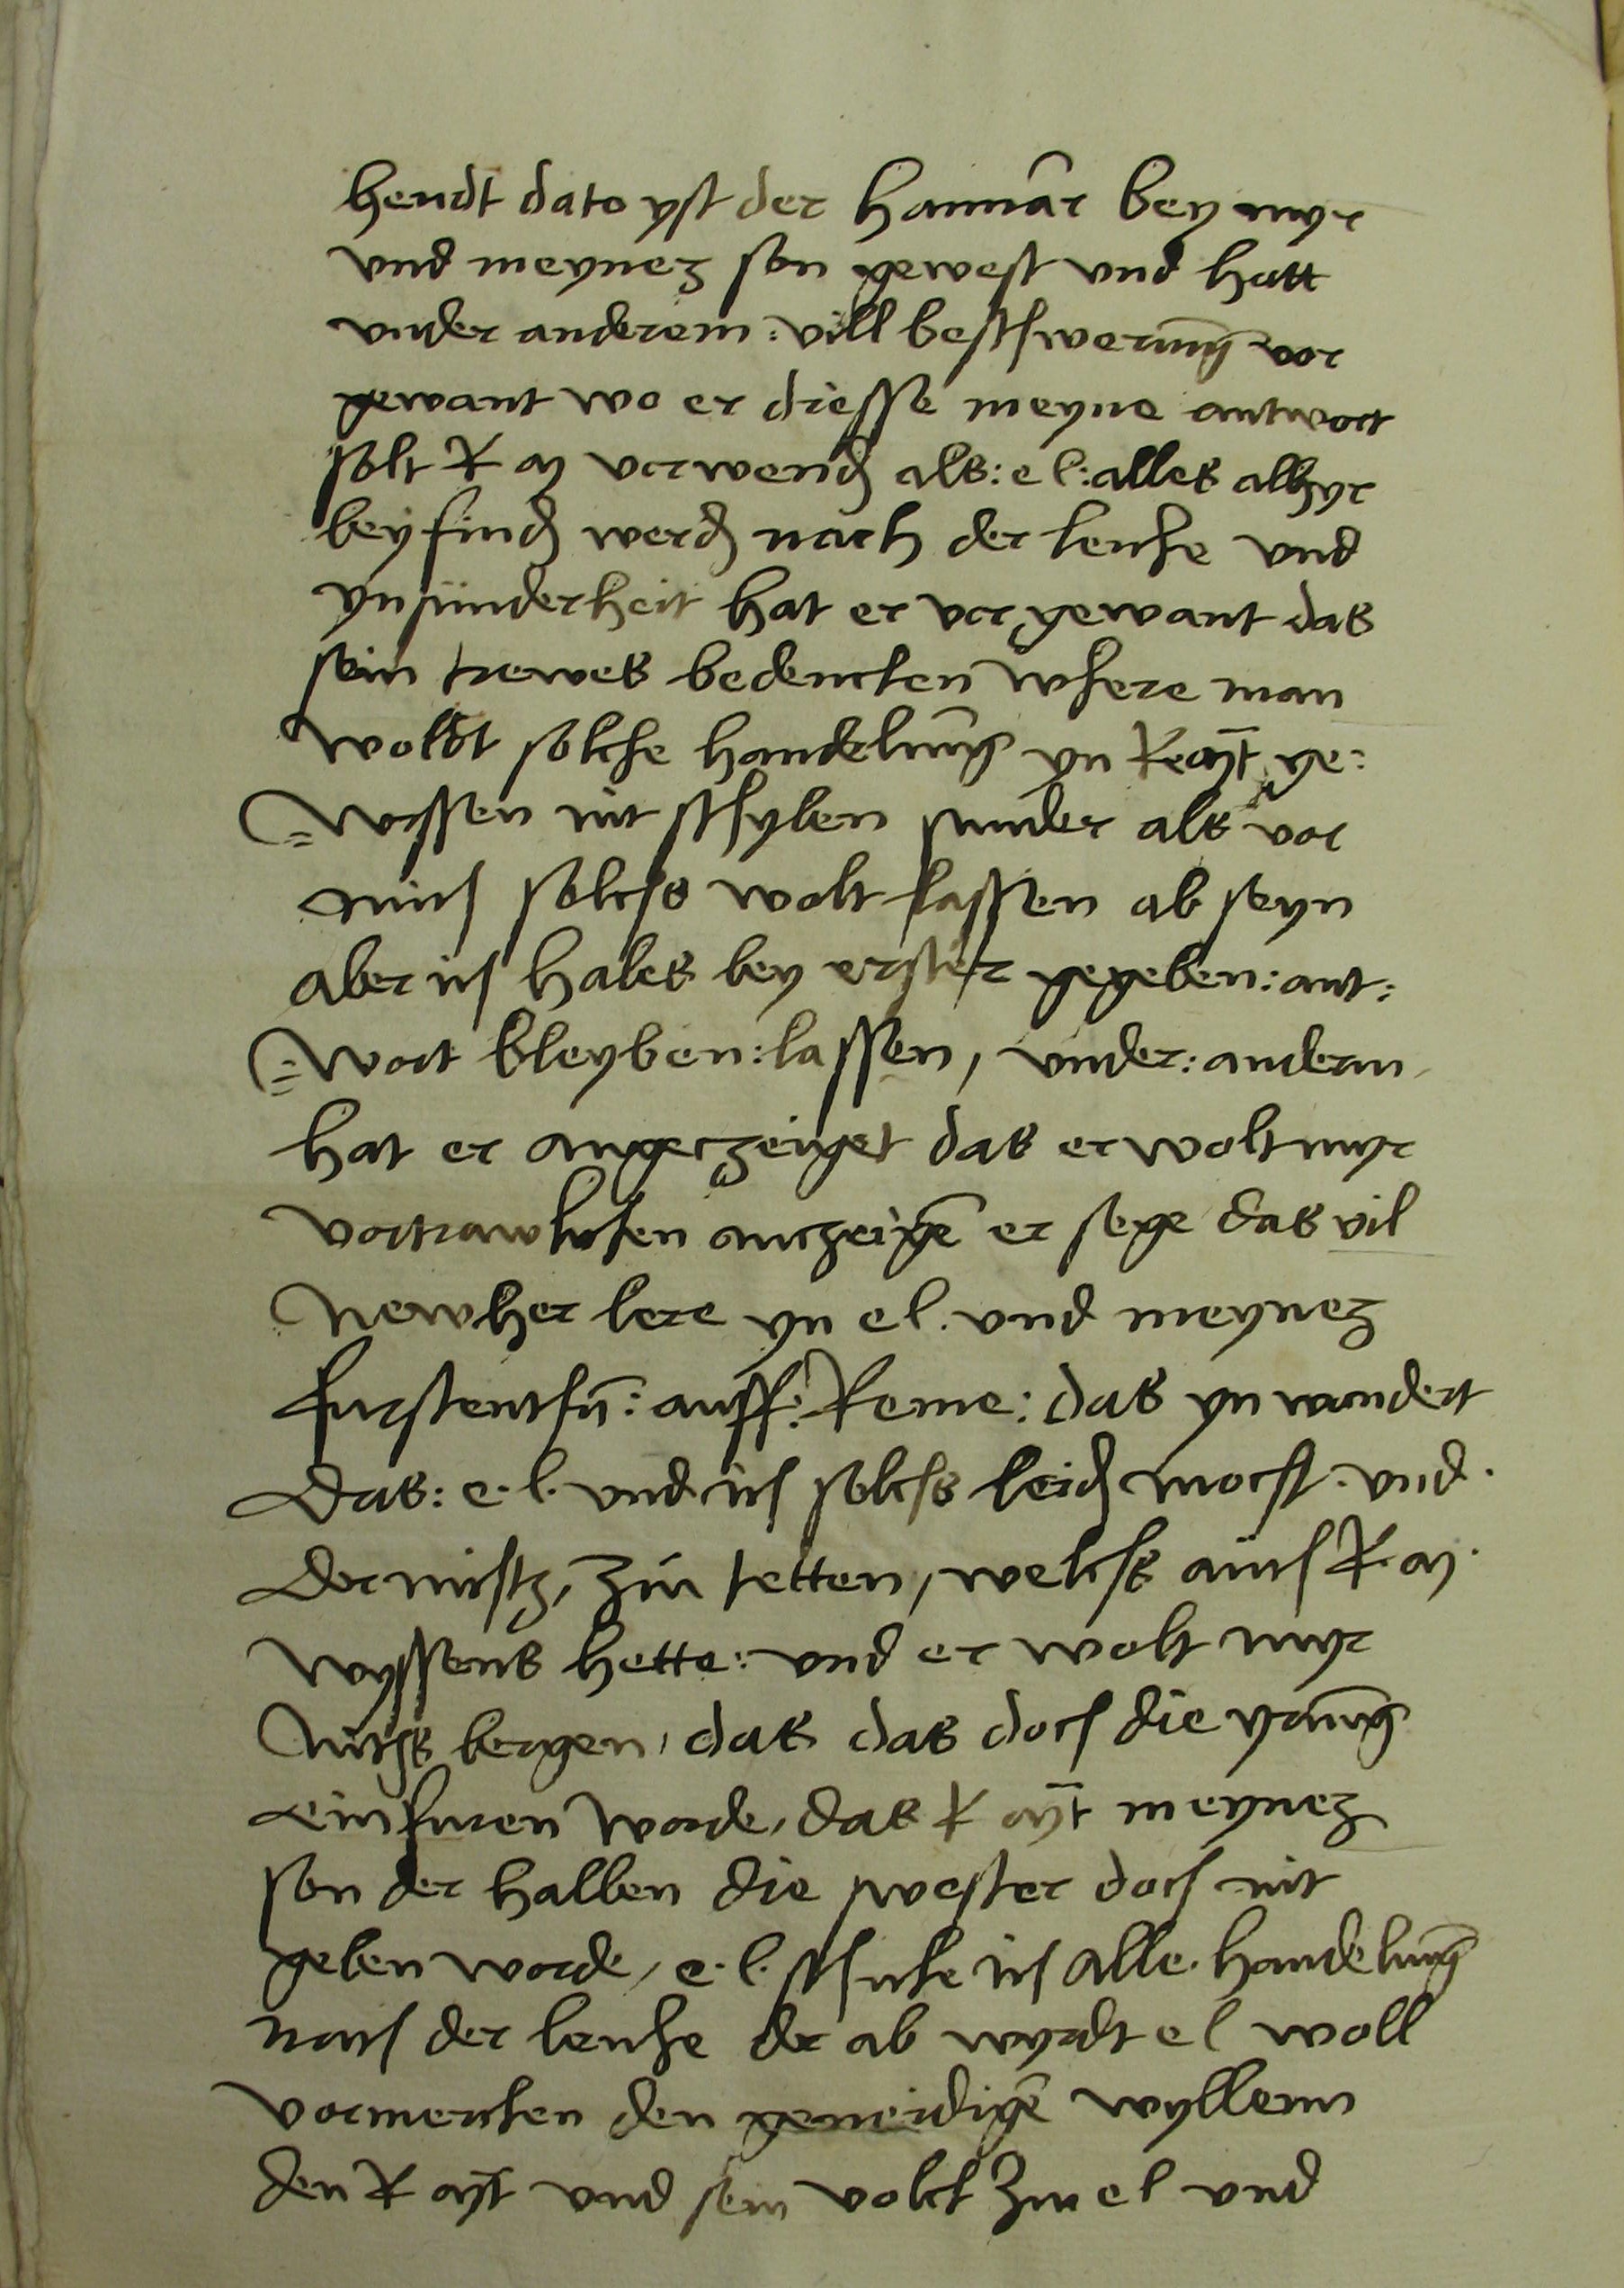 hendt dato yst der Hannar bey myr
vnd meynez son gewest vnd hatt
vnder anderem: vill beschwerung vor
gewant wo er diesse meyne antwort
solt K M vorwend als: e l: alles alhyr
bey find werd nach der lenche vnd
ynsunderheit hat er vor gewant das
sein trewes bedencken where man
woldt solche handelung yn K Mt ge:
=wissen nit schyben sunder als vor
mich solchs wolt lassen ab seyn
aber ich habes bey erster gegeben: ant:
=wort bleyben: lassen, vnder: anderm
hat er angeczeiget das er wolt myr
vortrawlichen anczeigen er sege das vil
Newher lere yn e l. vnd meynez
furstenthu: auff: keme: das yn wundert
das: e. l. vnd ich solchs leid mocht. vnd.
dor nichtz, zu tetten, welchs auch K. M.
wyssens hette: vnd er wolt myr
Nichts bergen, das das doch die yrrung
einfuren worde, das K Mt meynez
son der halben die swester doch nit
geben worde, e. l. schicke ich alle. handelung
nach der lenche der ab wyrdt e l woll
vormercken den geneidigen wyllenn
den K Mt vnd sein volck zu e l vnd